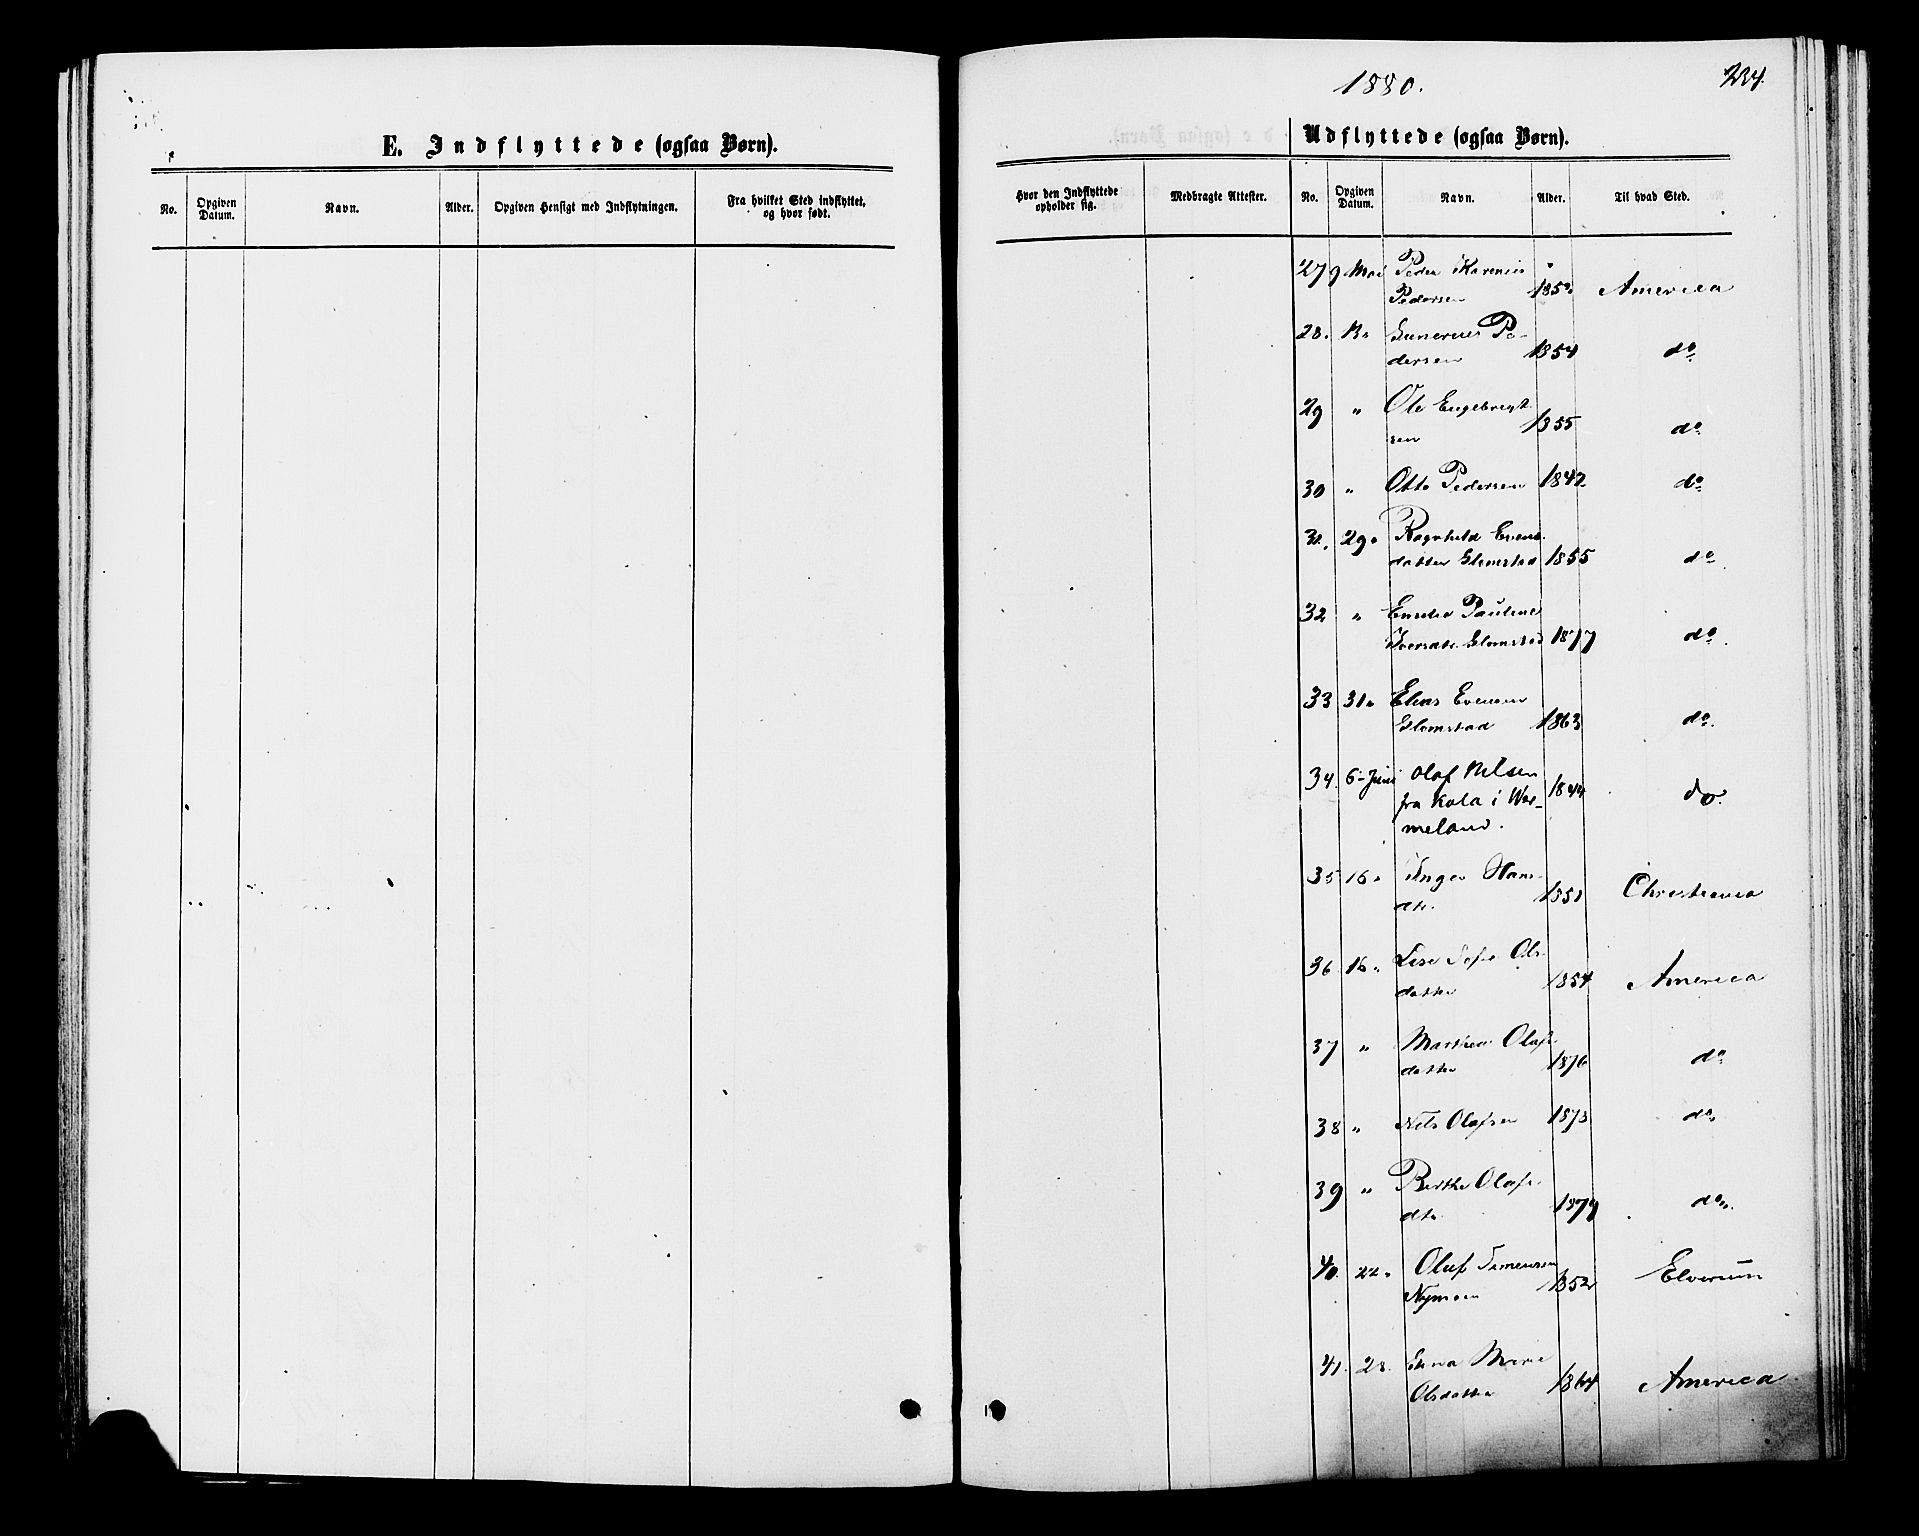 E. Indflyttede (ogsaa Børn).
No.
Opgiven Datum.
Navn.
Alder.
Opgiven Hensigt med Indflytningen.
Fra hvilket Sted indflyttet, og hvor født.
1880.
234.
Udflyttede (ogsaa Børn).
Hvor den Indflyttede opholder sig.
Medbragte Attester.
No.
Opgiven Datum.
Navn.
Alder.
Til hvad Sted.
27 9 Mai Peder Karenius
Pedersen 1850 America
28. Gunerius Pe-
dersen 1854 do
29 " Ole Engebregt
sen 1855 do
30 " Otto Pedersen 1842 do
31. 29 " Ragnhild Evens
datter Glomstad 1855 do
32 " Emelie Pauline
Iversdtr Glomstad 1877 do
33 31 " Elias Evensen
Glomstad 1863 do.
34. 6-Juni Olaf Nilsen
fra Kola i Wer- 1844 do.
meland.
35 16 " Inger Hans-
dtr. Christiania
36 16 " Lise Sofie Ols-
datter 1854 America
37 " Marthea Olafs-
datter 1876 do
38 " Nils Olafsen 1873 do
39 " Berthe Olafs-
dtr. 1879 do
40. 22 " Oluf Simensen
Nymoen 1852 Elverum
41. Marie
Olsdatter 1864 America